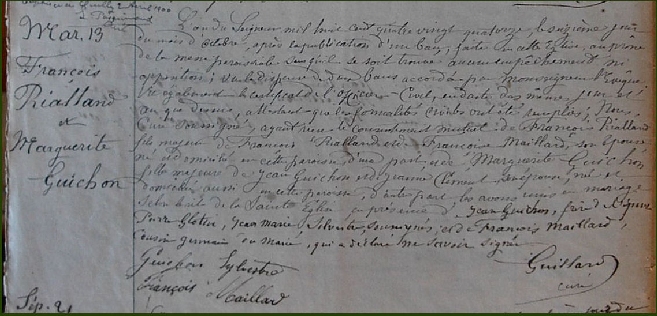 Mar. 13
François
Rialland
et
Marguerite
Guichon
L'an du Seigneur mil huit cent quatre vingt quatorze, le sixième jour
du mois d'octobre, après la publication d'un ban, faite en cette Eglise, au prône
de la messe paroissiale sans qu'il se soit trouvé aucun empêchement ni
opposition; vu la dispense de deux bans accordée par Monseigneur l'Evêque
Vu également le certificat de l'officier Civil, en date du même jour et
an que dessus, attestant que les formalités civiles ont été remplies, Nous
Curé soussigné, ayant reçu le consentement mutuel de François Rialland
fils majeur de François Rialland et de Françoise Maillard, son épouse
né et domicilié en cette paroisse d'une part, et de Marguerite Guichon
fille majeure de Jean Guichon et de Jeanne Clément, son épouse, née et
domiciliée aussi en cette paroisse, d'autre part, les avons unis en mariage
selon le rite de la Sainte Eglise en présence de Jean Guichon, frère de l'épouse
Pierre, Jean Marie Sylvestre, soussignés, et de François Maillard,
cousin germain du marié, qui a déclaré ne savoir signer
Guichon Sylvestre
François Maillard
Guillard
curé
Sép. 21